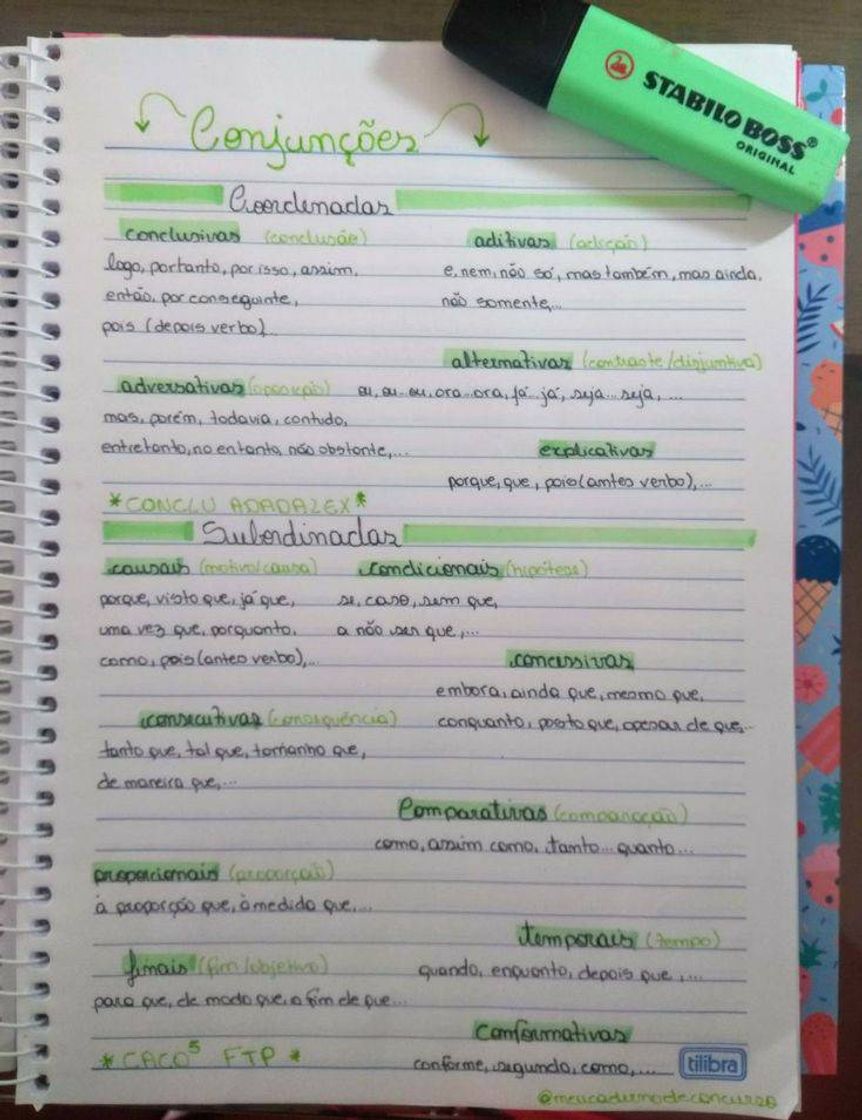 STABILO BOSS®
ORIGINAL
Conjunções
Coordenadas
conclusivas (conclusão)
logo, portanto, por isso, assim,
então, por conseguinte,
pois (depois verbo)
aditivas (adição)
e, nem, não só, mas também, mas ainda,
não somente,...
alternativas (contraste/disjuntiva)
ou, ou...ou, ora...ora, já...já, seja...seja, ...
adversativas (oposição)
mas, porém, todavia, contudo,
entretanto, no entanto, não obstante,...
explicativas
porque, que, pois (antes verbo),...
*CONCLU ADADALEX*
Subordinadas
causais (motivo/causa)
porque, visto que, já que,
uma vez que, porquanto,
como, pois (antes verbo),...
condicionais (hipótese)
se, caso, sem que,
a não ser que,...
concessivas
embora, ainda que, mesmo que,
conquanto, posto que, apesar de que...
consecutivas (consequência)
tanto que, tal que, tamanho que,
de maneira que,...
Comparativas (comparação)
como, assim como, tanto...quanto...
proporcionais (proporção)
à proporção que, à medida que,...
temporais (tempo)
quando, enquanto, depois que ,...
finais (fim/objetivo)
para que, de modo que, a fim de que...
Conformativas
conforme, segundo, como,...
*CACO⁵ FTP *
tilibra
@meucadernodeconcurso